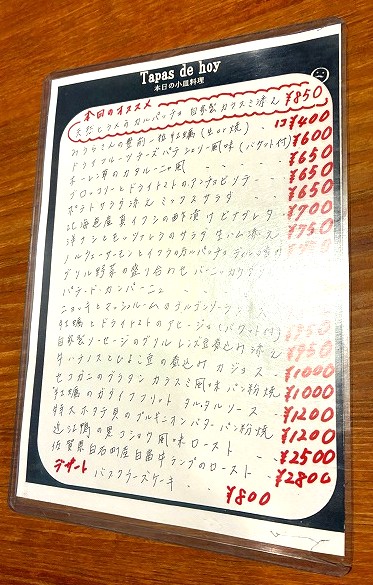 Tapas de hoy
本日の小皿料理
本日のオススメ
天然ヒラメのカルパッチョ 自家製カラスミ添え ¥850
1コ ¥400
ドライフルーツチーズ パテシェリー風味 (バゲット付) ¥600
ホーレン草のカタルーニャ風 ¥650
ブロッコリーとドライトマトのアンチョビソテー ¥650
ポテトサラダ添え ミックスサラダ ¥650
北海道産真イワシの酢漬け ビナグレタ ¥700
洋ナシとモッツァレラのサラダ 生ハム添え ¥750
ノルウェーサーモンとイクラのカルパッチョ
グリル野菜の盛り合わせ バーニャカウダ
パテ・ド・カンパーニュ
ニョッキとマッシュルームのゴルゴンゾーラソース
牡蠣とドライトマトのアヒージョ (バゲット付)
自家製ソーセージのグリル レンズ豆煮込み添え ¥950
牛ハチノスとひよこ豆の煮込み カジョス ¥1000
セコガニのグラタン カラスミ風味 パン粉焼 ¥1000
牡蠣のカダイフフリット タルタルソース ¥1200
特大ホタテ貝のブルギニオンバター パン粉焼 ¥1200
近江鴨の黒コショウ風味ロースト ¥2500
佐賀県白石町産白畠牛ランプのロースト ¥2800
デザート
バスクチーズケーキ ¥800